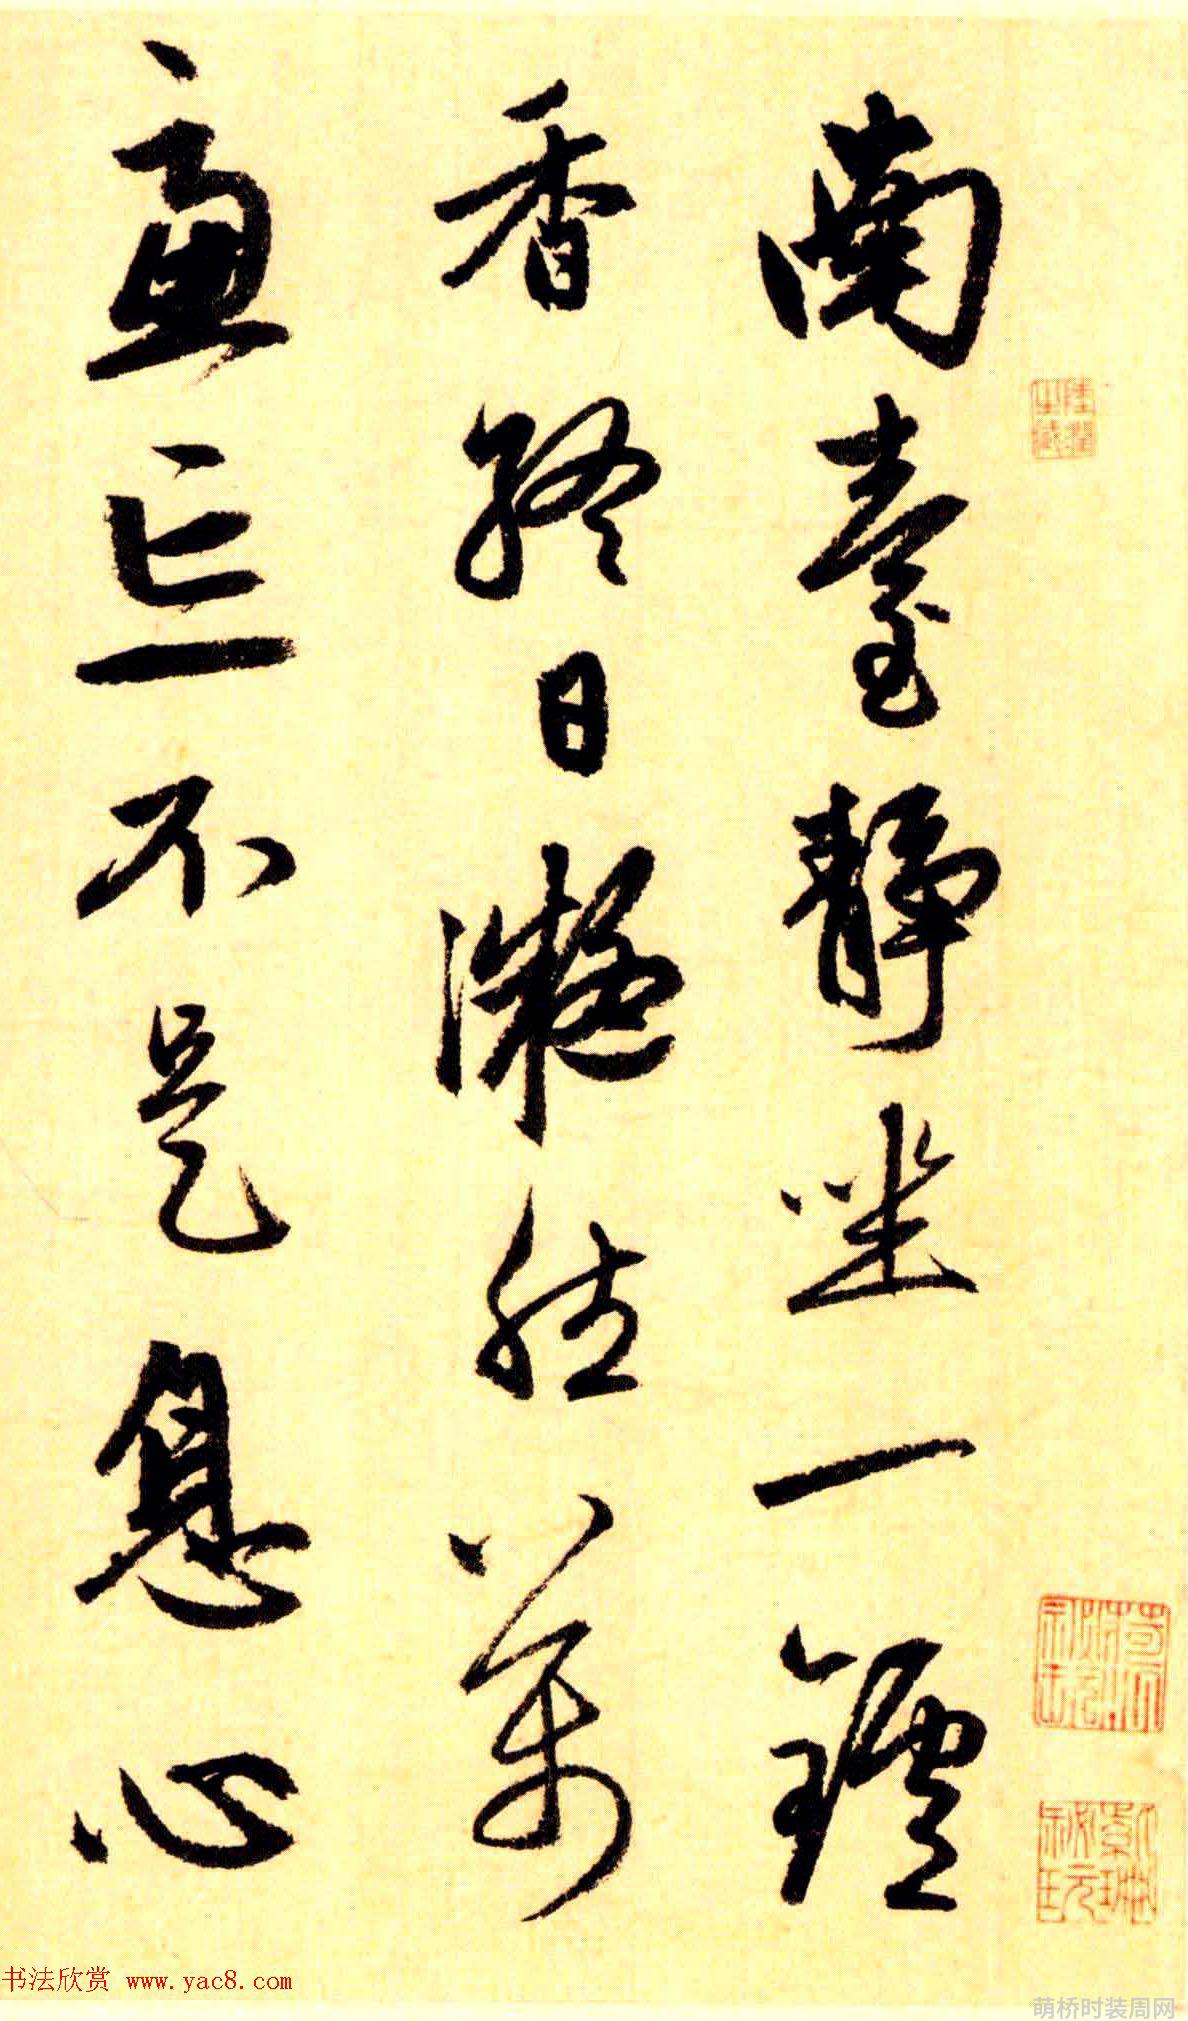 南臺靜坐一鑪
香終日凝然萬
慮忘不是息心
书法欣赏 www.yac8.com
萌桥时装周网